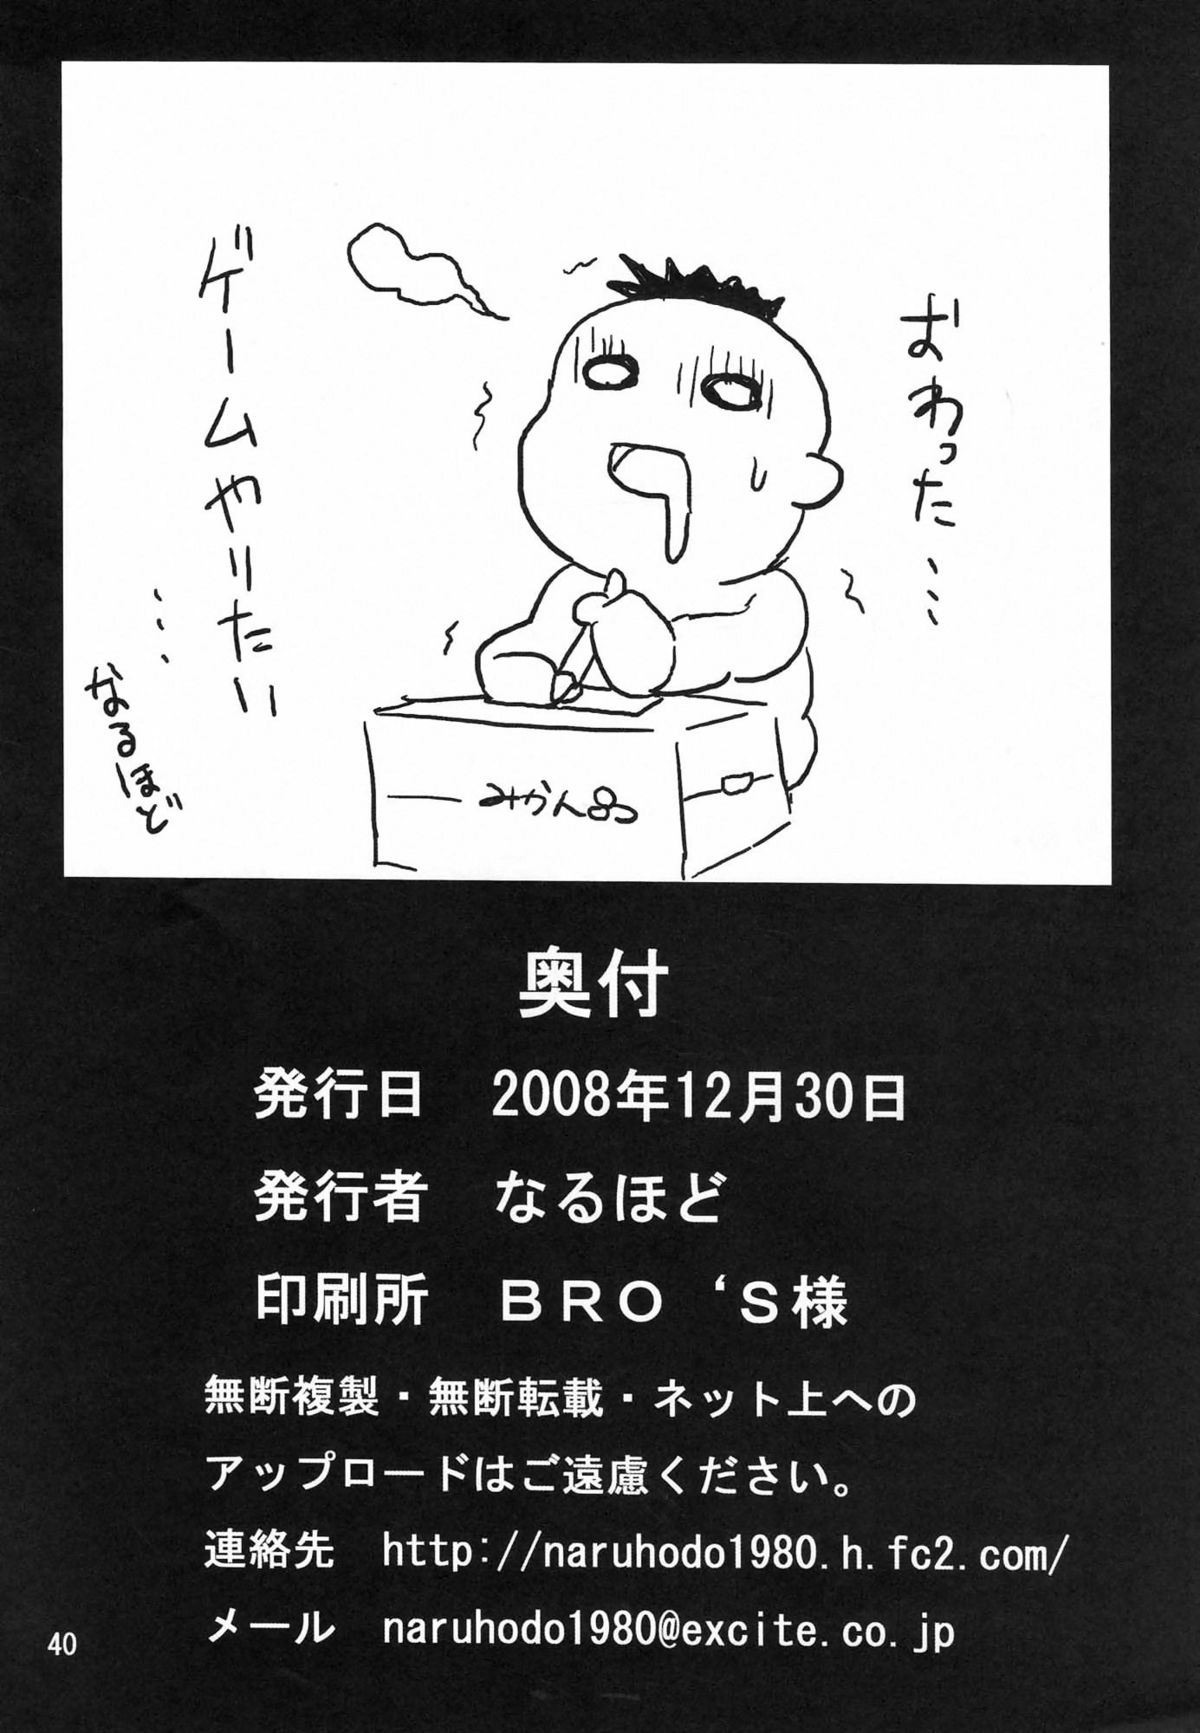 おわった…
ゲームやりたい…
なるほど
みかん
奥付
発行日 2008年12月30日
発行者 なるほど
印刷所 BRO ‘S様
無断複製・無断転載・ネット上への
アップロードはご遠慮ください。
連絡先 http://naruhodo1980.h.fc2.com/
メール naruhodo1980@excite.co.jp
40